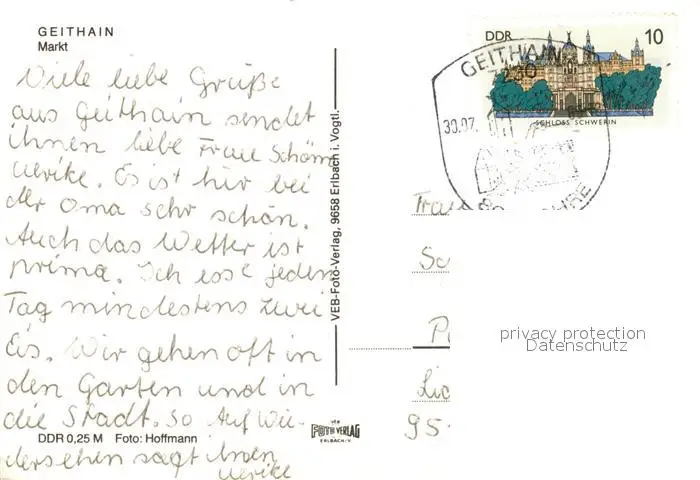 GEITHAIN
Markt
Viele liebe Grüße
aus Geithain sendet
ihnen liebe Frau Schöm
ulrike. Es ist hir bei
der Oma sehr schön.
Auch das Wetter ist
prima. Ich esse jeden
Tag mindestens zwei
Eis. Wir gehen oft in
den Garten und in
die Stadt. So Auf Wie-
dersehen sagt ihnen
ulrike
DDR 0,25 M Foto: Hoffmann
VEB-Foto-Verlag, 9658 Erlbach i. Vogtl.
VEB
FOTO VERLAG
ERLBACH/V.
DDR
10
SCHLOSS SCHWERIN
GEITHAIN
30.07.
Frau
95
privacy protection
Datenschutz